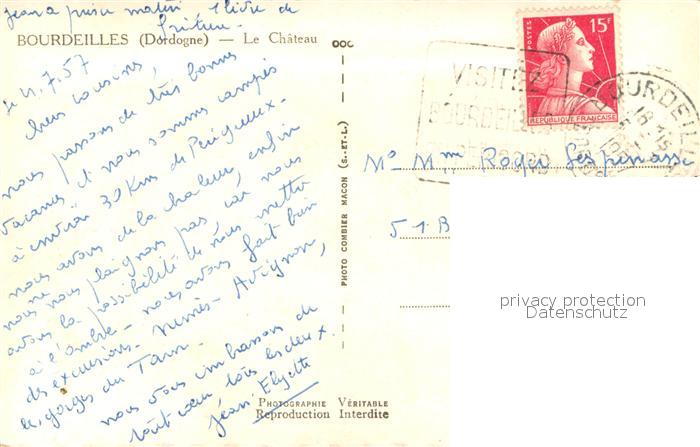 Jean a pris ce matin 1 livre de
friture.
BOURDEILLES (Dordogne) — Le Château
le 21.7.57
Chers cousins,
nous passons de très bonnes
vacances et nous sommes campés
à environ 30 Kms de Périgueux.
nous avons de la chaleur, enfin
ne nous plaignons pas car nous
avons la possibilité de nous mettre
à l'ombre. nous avons fait bien
des excursions. Nîmes - Avignon,
les gorges du Tarn.
nous vous embrassons de
tout cœur tous les deux.
Jean Elyette
PHOTOGRAPHIE VÉRITABLE
Reproduction Interdite
PHOTO COMBIER MACON (S.-ET-L.)
POSTES
15F
REPUBLIQUE FRANÇAISE
VISITEZ
BOURDEILLES
BOURDEILLES
Mr Mme Roger Lespinasse
51 B
privacy protection
Datenschutz